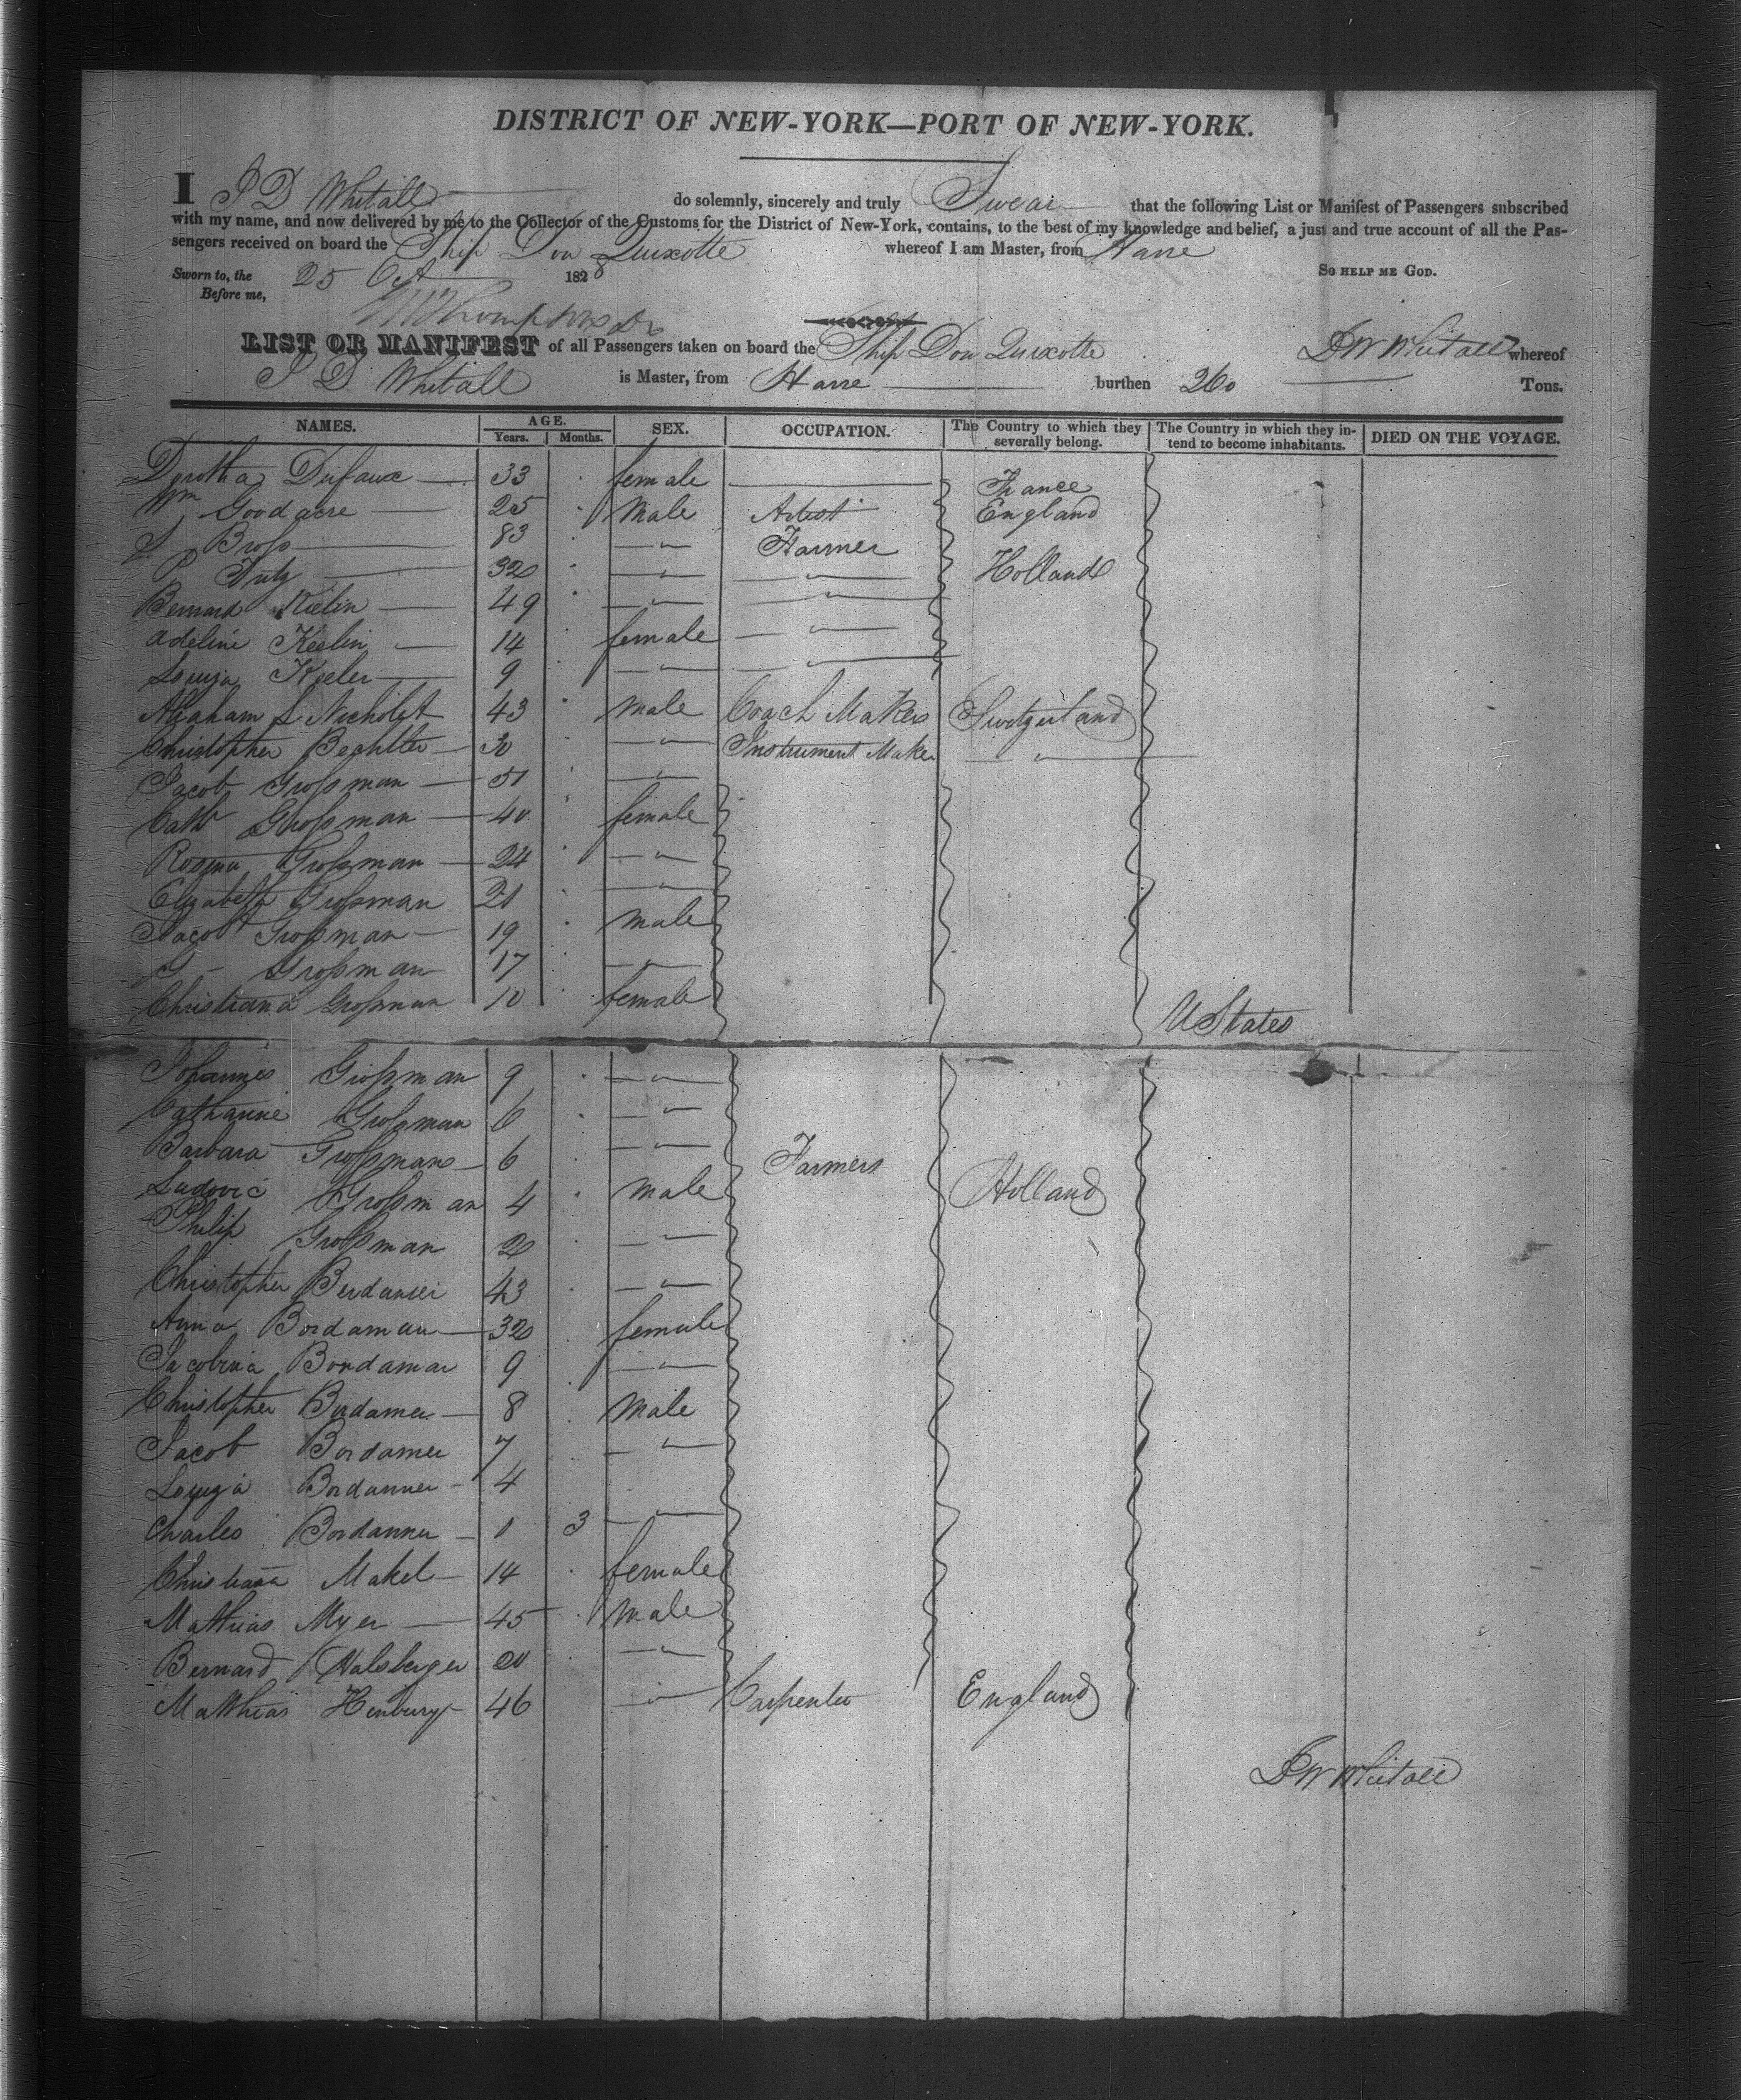 DISTRICT OF NEW-YORK—PORT OF NEW-YORK.
I J D Whitall do solemnly, sincerely and truly Swear that the following List or Manifest of Passengers subscribed
with my name, and now delivered by me to the Collector of the Customs for the District of New-York, contains, to the best of my knowledge and belief, a just and true account of all the Pas-
sengers received on board the Ship Don Quixotte whereof I am Master, from Havre
Sworn to, the 25 Oct 1828 SO HELP ME GOD.
Before me,
Thompson
LIST OR MANIFEST of all Passengers taken on board the Ship Don Quixotte whereof
D W Whitall
J D Whitall is Master, from Havre burthen 260 Tons.
NAMES. AGE. Years. Months. SEX. OCCUPATION. The Country to which they severally belong. The Country in which they in- tend to become inhabitants. DIED ON THE VOYAGE.
Dorothea Dufaux 33 female — France
Wm Goodacre 25 Male Artist England
Bross 83 — " — Farmer
P 32 — " — — " — Holland
Bernard Kielin 49 — " — — " —
Adeline Keelin 14 female — " —
Louiza Keeler 9 — " — — " —
Abraham L Nicholet 43 male Coach Maker Switzerland
Christopher Bechtler 30 — " — Instrument Maker — " —
Jacob Grossman 51 — " —
Cath Grossman 40 female
Rosina Grossman 24 — " —
Elizabeth Grossman 21 — " —
Jacob Grossman 19 male
G - Grossman 17 — " —
Christiana Grossman 10 female
U States
Johannes Grossman 9 — " —
Catharine Grossman 6 — " —
Barbara Grossman 6 — " — Farmers
Ludovic Grossman 4 male Holland
Philip Grossman 2 — " —
Christopher Berdamer 43 — " —
Anna Bordaman 32 female
Jacobina Bordamar 9 — " —
Christopher Bordamer 8 Male
Jacob Bordamer 7 — " —
Louiza Bordanner 4
Charles Bordanner 0 3 — " —
Christiana Makel 14 female
Mathias Myer 45 Male
Bernard Halsberger 20 — " —
Matthias Henbury 46 — " — Carpenter England
D W Whitall